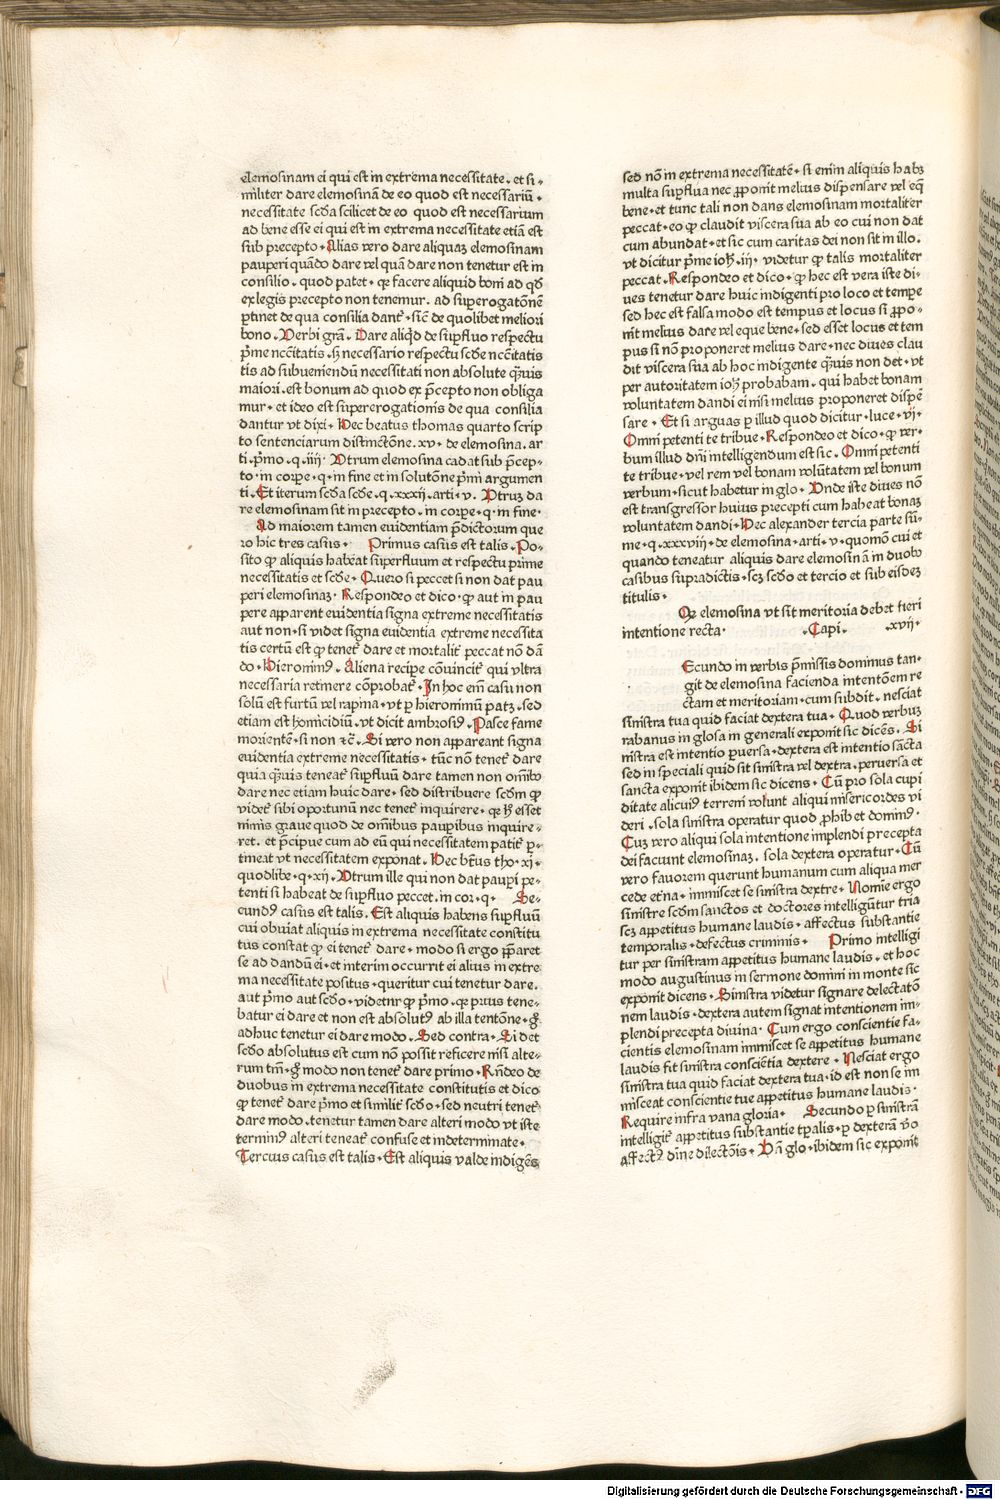 elemosinam ei qui est in extrema necessitate. et si-
militer dare elemosinã de eo quod est necessariũ.
necessitate scđa scilicet de eo quod est necessarium
ad bene esse ei qui est in extrema necessitate etiã est
sub precepto. Alias vero dare aliquaʒ elemosinam
pauperi quãdo dare vel quã dare non tenetur est in
consilio. quod patet. qꝛ facere aliquid boni ad qđ
ex legis precepto non tenemur. ad superogatõnẽ
ꝑtinet de qua consilia dant᷑. sic̃ de quolibet meliori
bono. Verbi grã. Dare aliqd̃ de suꝑfluo respectu
p̃me nc̃citatis. ꝩ necessario respectu scđe nc̃citatis
tis ad subueniendũ necessitati non absolute q̃ꝫuis
maiori. est bonum ad quod ex p̃cepto non obliga
mur. et ideo est supererogationis de qua consilia
dantur vt dixi. Hec beatus thomas quarto scrip
to sentenciarum distinctõne. xv. de elemosina. ar
ti. p̃mo. q. iiij. Vtrum elemosina cadat sub p̃cep-
to. in corpe. q. in fine et in solutõne p̃mi argumen
ti. Et iterum scđa scđe. q. xxxij. arti. v. Vtrum da
re elemosinam sit in precepto. in corpe. q. in fine.
Ad maiorem tamen euidentiam p̃dictorum que
ro hic tres casus. Primus casus est talis. Po-
sito ꝙ aliquis habeat superfluum et respectu prime
necessitatis et scđe. Quero si peccet si non dat pau
peri elemosinaʒ. Respondeo et dico. ꝙ aut in pau
pere apparent euidentia signa extreme necessitatis
aut non. si videt signa euidentia extreme necessita
tis certũ est ꝙ tenet᷑ dare et mortalit᷑ peccat nõ dã
do. Hieronimꝰ. Aliena recipe cõuincit᷑ qui vltra
necessaria retinere cõprobat᷑. In hoc em̃ casu non
solũ est furtũ vel rapina. vt ꝑ hieronimũ patʒ. sed
etiam est homicidiũ. vt dicit ambrosiꝰ. Pasce fame
morientẽ. si non ⁊c̃. Si vero non appareant signa
euidentia extreme necessitatis. tũc nõ tenet᷑ dare
quia q̃ꝫuis teneat᷑ suꝑfluũ dare tamen non om̃ibꝰ
dare nec etiam huic dare. sed distribuere scđm ꝙ
videt᷑ sibi oportunũ nec tenet᷑ inquirere. qꝛ h̃ esset
nimis graue quod de om̃ibus pauꝑibus inquire-
ret. et p̃cipue cum ad eũ qui necessitatem patit᷑ ꝑ-
tineat vt necessitatem exponat. Hec bt̃us tho. xi.
quodlibe. q. xij. Vtrum ille qui non dat pauꝑi pe-
tenti si habeat de suꝑfluo peccet. in cor. q. Se-
cundꝰ casus est talis. Est aliquis habens suꝑfluũ
cui obuiat aliquis in extrema necessitate constitu
tus constat ꝙ ei tenet᷑ dare. modo si ergo p̃paret
se ad dandũ ei. et interim occurrit ei alius in extre
ma necessitate positus. queritur cui tenetur dare.
aut p̃mo aut scđo. videtur ꝙ p̃mo. qꝛ prius tene-
batur ei dare et non est absolutꝰ ab illa tentõne. g̊
adhuc tenetur ei dare modo. Sed contra. Si det
scđo absolutus est cum nõ possit reficere nisi alte-
rum tm̃. g̊ modo non tenet᷑ dare primo. Rñdeo de
duobus in extrema necessitate constitutis et dico
ꝙ tenet᷑ dare p̃mo et similit᷑ scđo. sed neutri tenet᷑
dare modo. tenetur tamen dare alteri modo vt iste
terminꝰ alteri teneat᷑ confuse et indeterminate.
Tercius casus est talis. Est aliquis valde indigẽs
sed nõ in extrema necessitatẽ. si enim aliquis habʒ
multa suꝑflua nec ꝓponit melius dispensare vel eq̃
bene. et tunc tali non dans elemosinam mortaliter
peccat. eo ꝙ claudit viscera sua ab eo cui non dat
cum abundat. et sic cum caritas dei non sit in illo.
vt dicitur p̃me ioh̃. iij. videtur ꝙ talis mortaliter
peccat. Respondeo et dico. ꝙ hec est vera iste di-
ues tenetur dare huic indigenti pro loco et tempe
sed hec est falsa modo est tempus et locus si ꝓpo-
nit melius dare vel eque bene. sed esset locus et tem
pus si nõ proponeret melius dare. nec diues clau
dit viscera sua ab hoc indigente q̃ꝫuis non det. vt
per autoritatem ioh̃ probabam. qui habet bonam
voluntatem dandi ei nisi melius proponeret dispẽ
sare. Et si arguas ꝑ illud quod dicitur. luce. vj.
Omni petenti te tribue. Respondeo et dico. ꝙ ver-
bum illud dñi intelligendum est sic. Omni petenti
te tribue. vel rem vel bonam volũtatem vel bonum
verbum. sicut habetur in glo. Vnde iste diues nõ
est transgressor huius precepti cum habeat bonaʒ
voluntatem dandi. Hec alexander tercia parte sũ-
me. q. xxxviij. de elemosina. arti. v. quomõ cui et
quando teneatur aliquis dare elemosinã in duobꝰ
casibus supradictis. scʒ scđo et tercio et sub eisdeʒ
titulis.
Qꝫ elemosina vt sit meritoria debet fieri
intentione recta. Capi. xvij.
Ecundo in verbis p̃missis dominus tan-
git de elemosina facienda intentõem re
ctam et meritoriam. cum subdit. nesciat
sinistra tua quid faciat dextera tua. Quod verbuʒ
rabanus in glosa in generali exponit sic dicẽs. Si
nistra est intentio ꝑuersa. dextera est intentio sãcta
sed in speciali quid sit sinistra vel dextra. peruersa et
sancta exponit ibidem sic dicens. Cũ pro sola cupi
ditate alicuiꝰ terreni volunt aliqui misericordes vi
deri. sola sinistra operatur quod ꝓhib et dominꝰ.
Cuʒ vero aliqui sola intentione implendi precepta
dei faciunt elemosinaʒ. sola dextera operatur. Cũ
vero fauorem querunt humanum cum aliqua mer
cede et̃na. immiscet se sinistra dextre. Nomĩe ergo
sinistre scđm sanctos et doctores intelligũtur tria
scʒ appetitus humane laudis. affectus substantie
temporalis. defectus criminis. Primo intelligi
tur per sinistram appetitus humane laudis. et hoc
modo augustinus in sermone domini in monte sic
exponit dicens. Sinistra videtur signare delectatõ
nem laudis. dextera autem signat intentionem im-
plendi precepta diuina. Cum ergo conscientie fa-
cientis elemosinam immiscet se appetitus humane
laudis fit sinistra consciẽtia dextere. Nesciat ergo
sinistra tua quid faciat dextera tua. id est non se im
misceat conscientie tue appetitus humane laudis.
Require infra vana gloria. Secundo ꝑ sinistrã
intelligit᷑ appetitus substantie tp̃alis. ꝑ dexterã v̊o
affectꝰ diuĩe dilectõis. Vñ glo. ibidem sic exponit
Digitalisierung gefördert durch die Deutsche Forschungsgemeinschaft - DFG